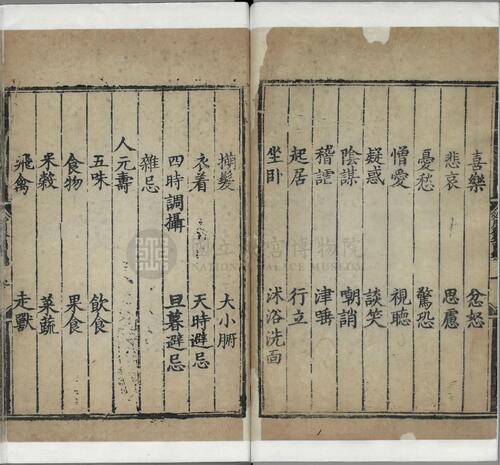 喜樂 忿怒
悲哀 思慮
憂愁 驚恐
憎愛 視聽
疑惑 談笑
陰謀 嘲誚
津唾
起居 行立
坐臥 沐浴洗面
大小腑
衣着 天時避忌
四時調攝 旦暮避忌
雜忌
人元壽
五味 飲食
食物 果食
米穀 菜蔬
飛禽 走獸
國立故宮博物院
NATIONAL PALACE MUSEUM